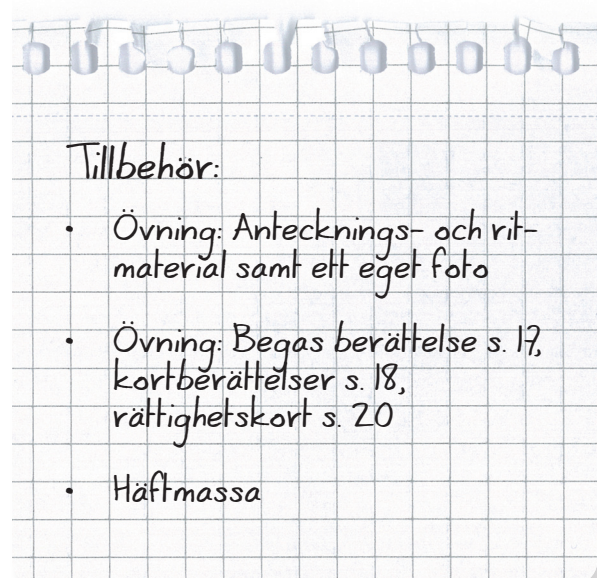 Tillbehör:
• Övning: Antecknings- och rit-
material samt ett eget foto
• Övning: Begas berättelse s. 17,
kortberättelser s. 18,
rättighetskort s. 20
• Häftmassa